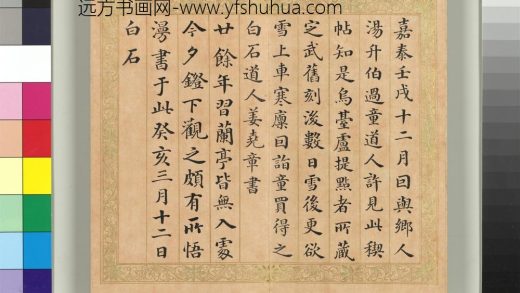 远方书画网-www.yfshuhua.com
嘉泰壬戌十二月囙與鄉人
湯升伯過童道人許見此稧
帖知是烏臺盧提㸃者所藏
定武舊刻浚數日雪後更欲
雪上車寒廩囙詣童買得之
白石道人姜堯章書
廿餘年習蘭亭皆無入處
今夕鐙下觀之頗有所悟
漫書于此癸亥三月十二日
白石